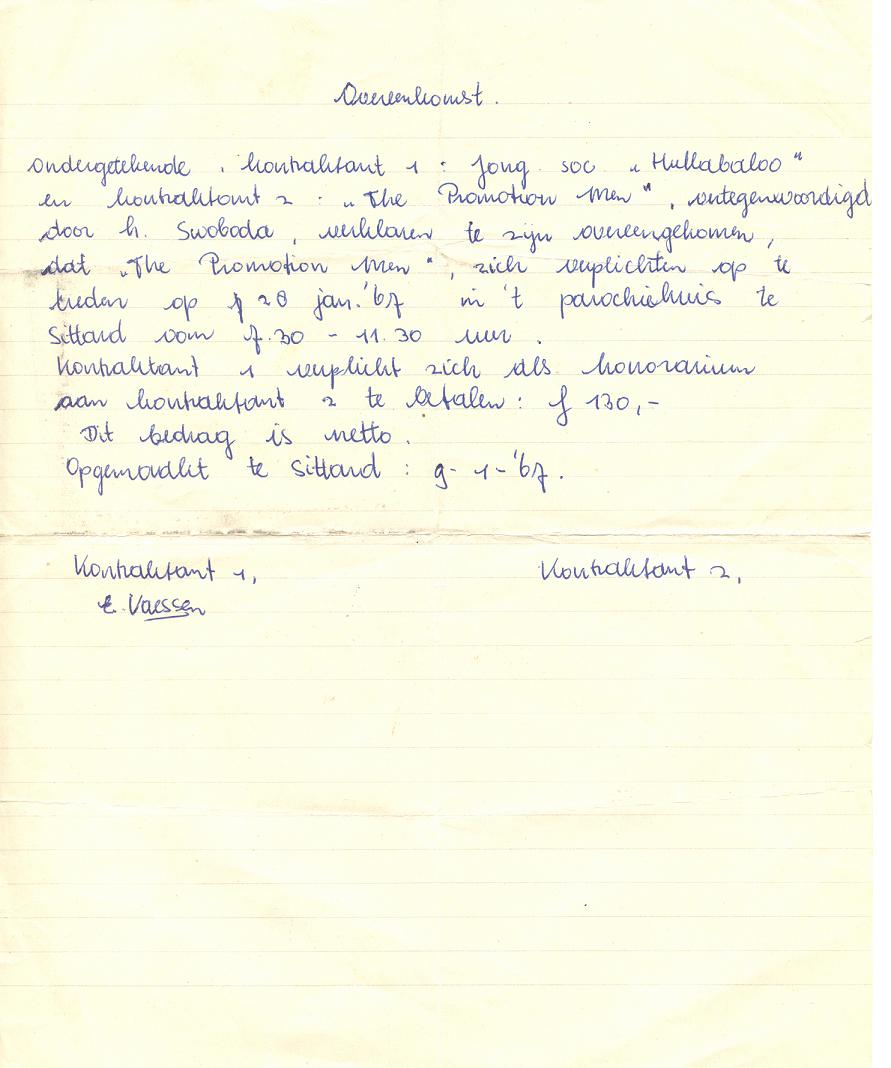 Overeenkomst.
Ondergetekende, kontraktant 1 : Jong. soc „Hullabaloo"
en kontraktant 2 : „The Promotion Men", vertegenwoordigd
door h. Swoboda, verklaren te zijn overeengekomen,
dat „The Promotion Men", zich verplichten op te
treden op 28 jan. '67 in 't parochiehuis te
Sittard van 7.30 - 11.30 uur.
Kontraktant 1 verplicht zich als honorarium
aan kontraktant 2 te betalen: f 130,-
Dit bedrag is netto.
Opgemaakt te Sittard : 9-1-'67.
Kontraktant 1,
Kontraktant 2,
E. Vaessen